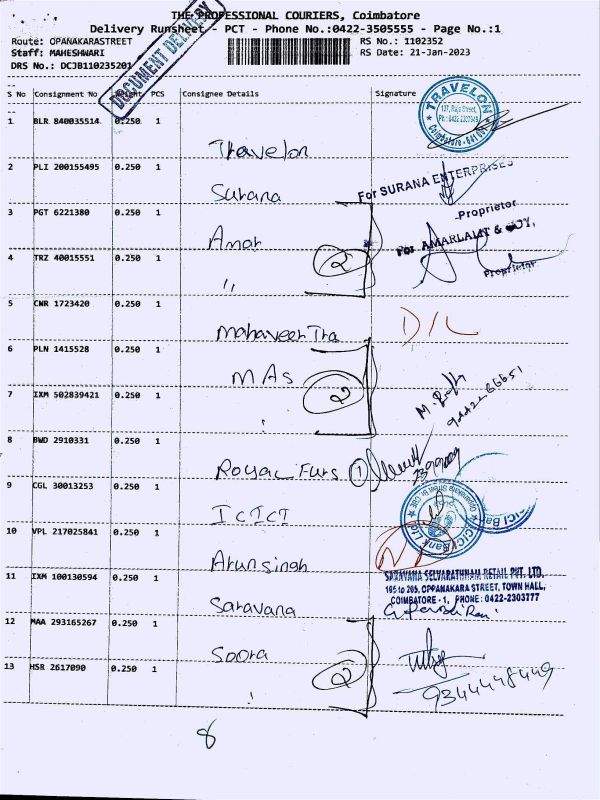 THE PROFESSIONAL COURIERS, Coimbatore
Delivery Runsheet - PCT - Phone No.:0422-3505555 - Page No.:1
Route: OPANAKARASTREET RS No.: 1102352
Staff: MAHESHWARI RS Date: 21-Jan-2023
DRS No.: DCJB110235201
DOCUMENT DELIVERY
S No Consignment No PCS Consignee Details Signature
TRAVELON
Coimbatore
1 BLR 840035514 0.250 1
Travelon
2 PLI 200155495 0.250 1
For SURANA ENTERPRISES
Surana
Proprietor
3 PGT 6221380 0.250 1
Amar 2
For AMARLAL & COY,
4 TRZ 40015551 0.250 1
Proprietor
"
5 CNR 1723420 0.250 1
Mahaveer Tra D/L
6 PLN 1415528 0.250 1
MAs 2
7 IXM 502839421 0.250 1
8 BWD 2910331 0.250 1
Royal Furs 1
9 CGL 30013253 0.250 1
ICICI
ICICI Bank Ltd
10 VPL 217025841 0.250 1
Arunsingh
11 IXM 100130594 0.250 1
SARAVANA SELVARATHNAM RETAIL PVT. LTD.
195 to 205, OPPANAKARA STREET, TOWN HALL,
COIMBATORE - 1, PHONE : 0422-2303777
Saravana
12 MAA 293165267 0.250 1
Soora 2
13 HSR 2617090 0.250 1
9344448449
8